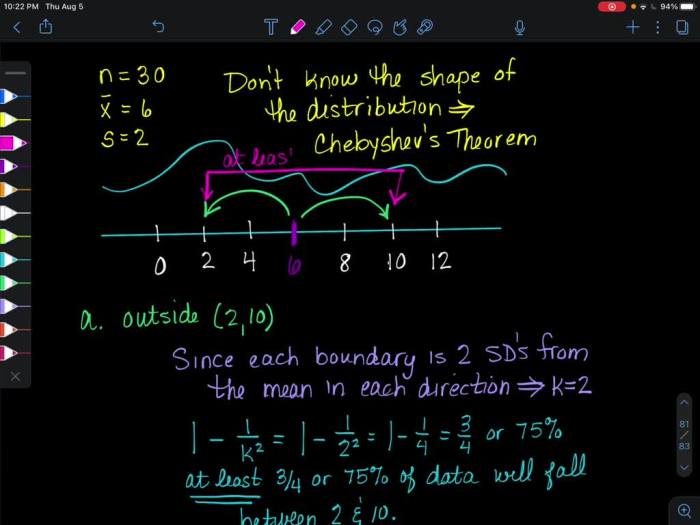 10:22 PM Thu Aug 5
94%
n = 30
x̄ = 6
s = 2
Don't know the shape of
the distribution ⇒
Chebyshev's Theorem
at leas
0 2 4 6 8 10 12
a. outside (2,10)
Since each boundary is 2 SD's from
the mean in each direction ⇒ K=2
1 - 1/K² = 1 - 1/2² = 1 - 1/4 = 3/4 or 75%
at least 3/4 or 75% of data will fall
between 2 & 10.
81
/
83